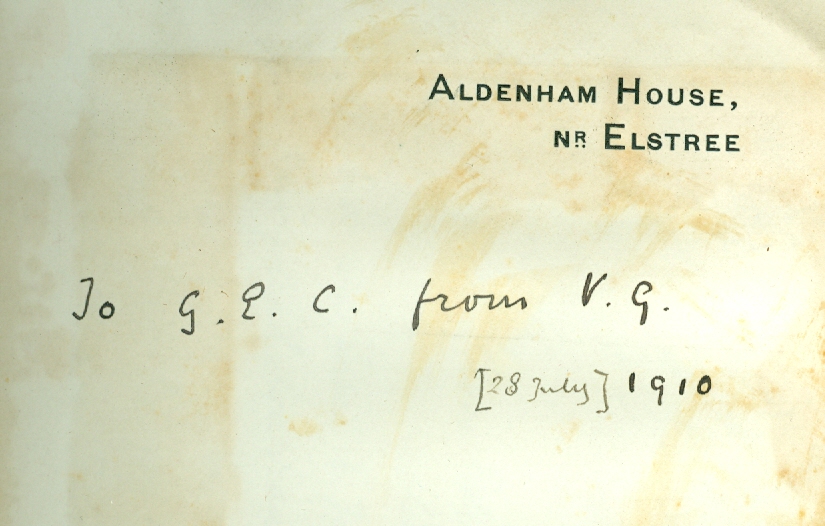 ALDENHAM HOUSE,
NR ELSTREE
To G. E. C. from V. G.
[28 July] 1910